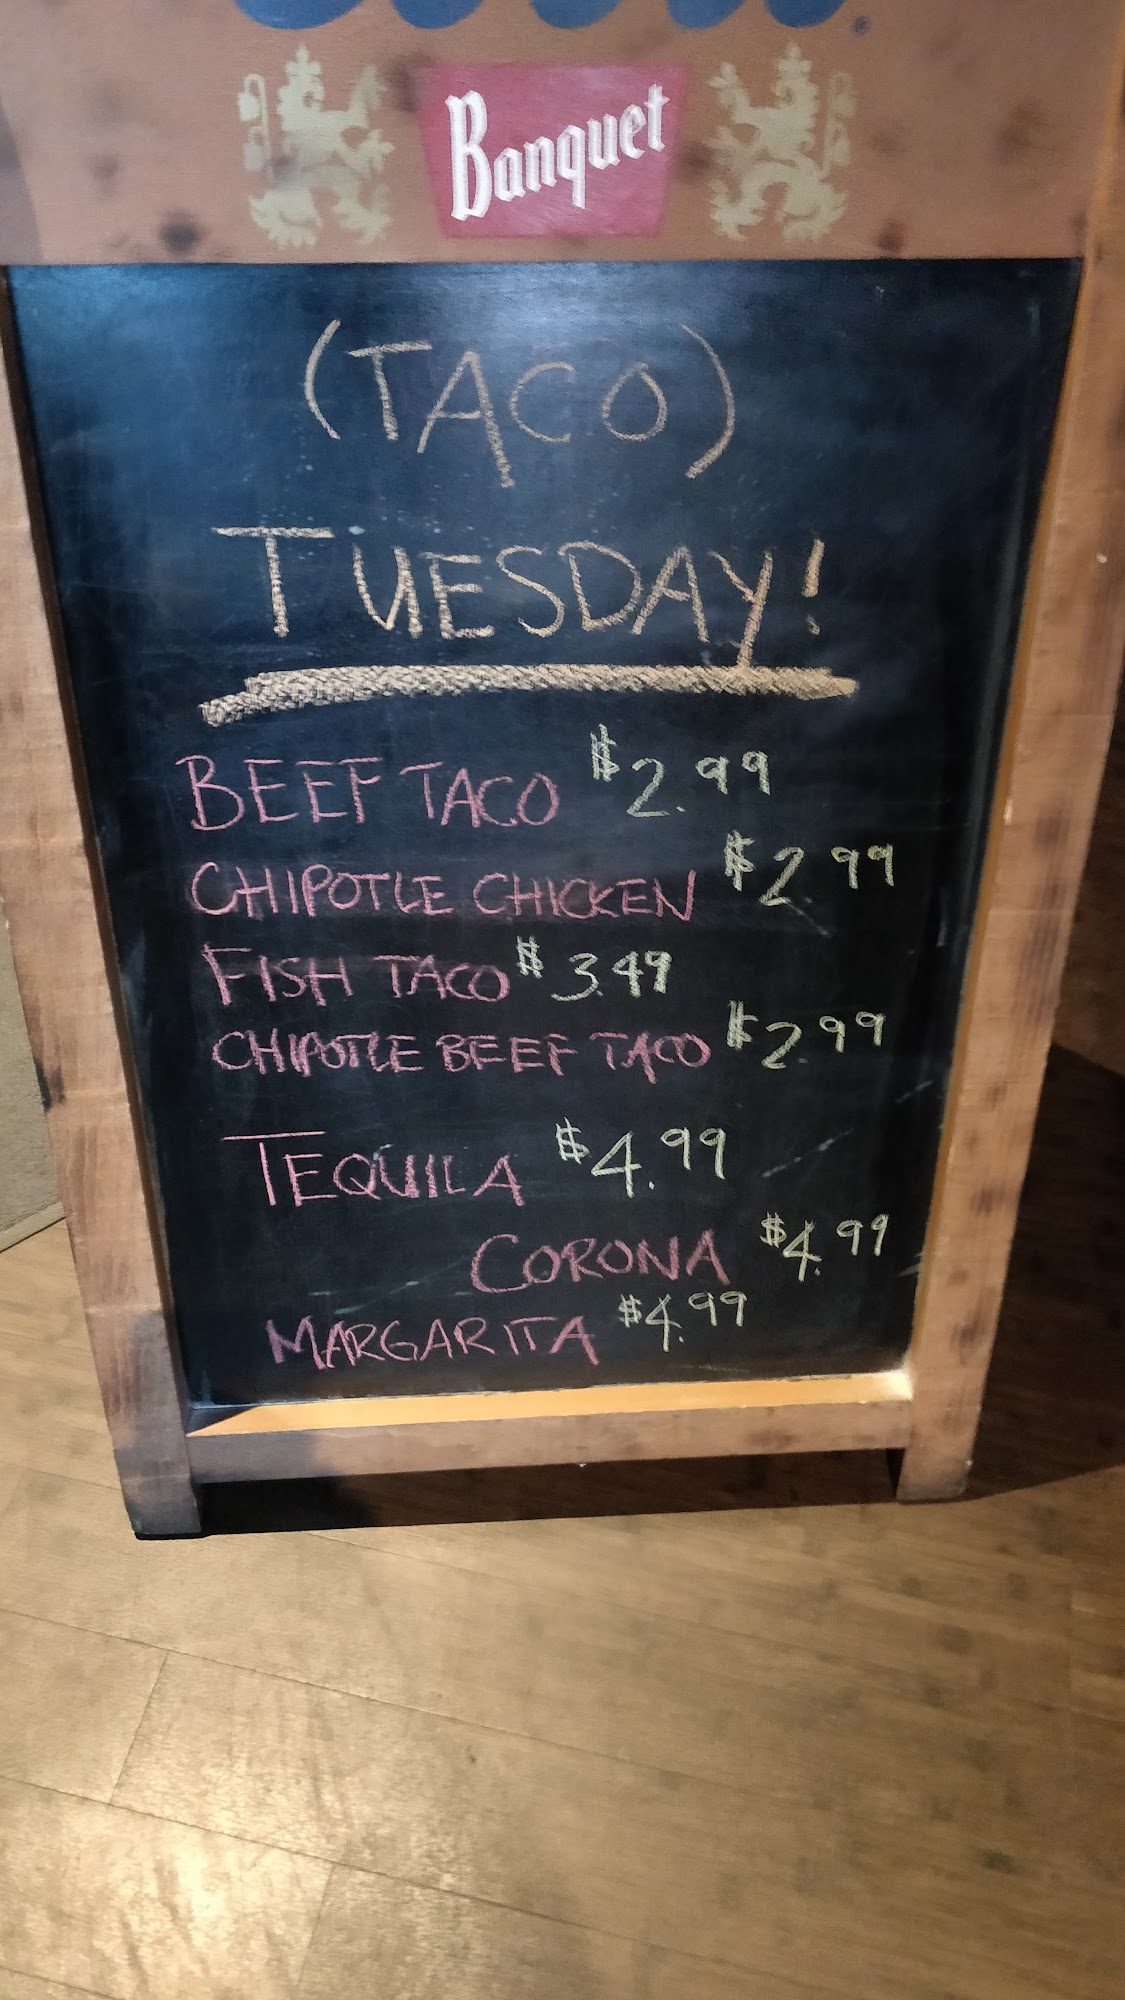 Banquet
(TACO)
TUESDAY!
BEEF TACO $2.99
CHIPOTLE CHICKEN $2.99
FISH TACO $3.49
CHIPOTLE BEEF TACO $2.99
TEQUILA $4.99
CORONA $4.99
MARGARITA $4.99